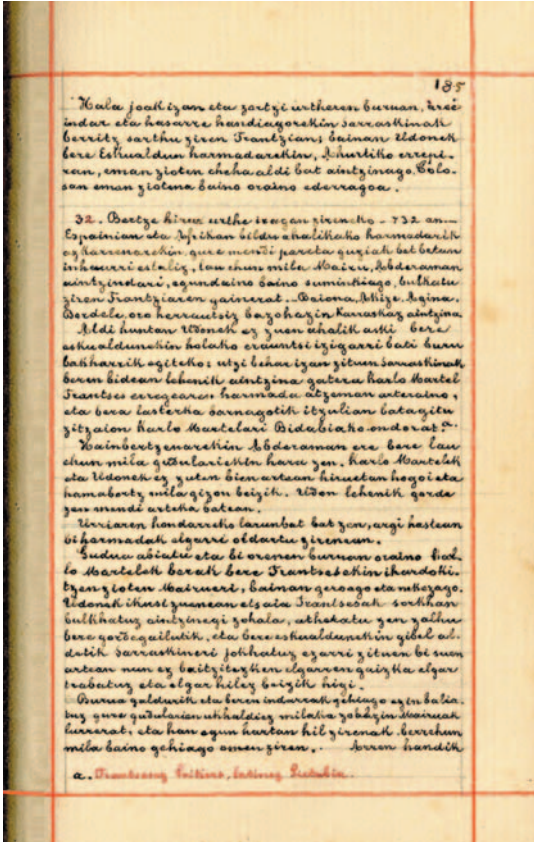 185
Hala joak izan eta zortzi urtheren buruan,
indar eta hasarre handiagorekin Sarraskinak
berritz sarthu ziren Frantzian; bainan Udonek
bere Eskualdun harmadarekin, Arhurliko errepi-
ran, eman zioten cheha aldi bat aintzinago, Tolo-
san eman ziotena baino oraino ederragoa.
32. Bertze hirur urthe iragan zireneko - 732 an -
Espainian eta Afrikan bildu ahalikako harmadarik
azkarrenarekin, gure mendi pareta guziak bet betan
inhaurri estaliz, lau ehun mila Mairu, Abderaman
aintzindari, egundaino baino suminkiago, bulkatu
ziren Frantziaren gainerat. Baiona, Akize, Agina,
Bordele, oro herrautsiz bazohazin Karraskaz aintzina.
Aldi huntan Udonek ez zuen ahalik aski bere
eskualdunekin holako erauntsi izigarri bati buru
bakharrik egiteko; utzi behar izan zituen Sarraskinak
beren bidean lehenik aintzina gatera Karlo Martel
Frantses erregearen harmada atzeman arteraino,
eta bera lasterka barnagotik itzulian batagitu
zitzaion Karlo Martelari Bidabiako ondorat. a.
Hainbertzenarekin Abderaman ere bere lau
ehun mila gudulariekin hara zen. Karlo Martelek
eta Udonek ez zuten bien artean hiruetan hogoi eta
hamabortz mila gizon beizik. Udon lehenik gorde
zen mendi arteka batean.
Urriaren hondarreko larunbat bat zen, argi hastean
bi harmadak elgarri oldartu zirenean.
Gudua abiatu eta bi orenen buruan oraino Kar-
lo Martelek berak bere Frantsesekin ihardoki-
tzen zioten Mairueri, bainan geroago eta nekezago.
Udonek ikusi zuenean etsaia Frantsesak sorkhan
bulkhatuz aintzinegi zohala, athekatu zen zalhu
bere gordegailutik, eta bere eskualdunekin gibel al-
detik Sarraskineri jokhatuz ezarri zituen bi suen
artean nun ez baitzitezken elgarren gaizka elgar
trabatuz eta elgar hilez beizik higi.
Burua galdurik eta beren indarrak gehiago ezin balia-
tuz gure gudularien ukhaldiez milaka zohazin Mairuak
lurrerat, eta han egun hartan hil zirenak berrehun
mila baino gehiago omen ziren. Arren handik
a. Frantsesez Poitiers, latinez Pictabia.